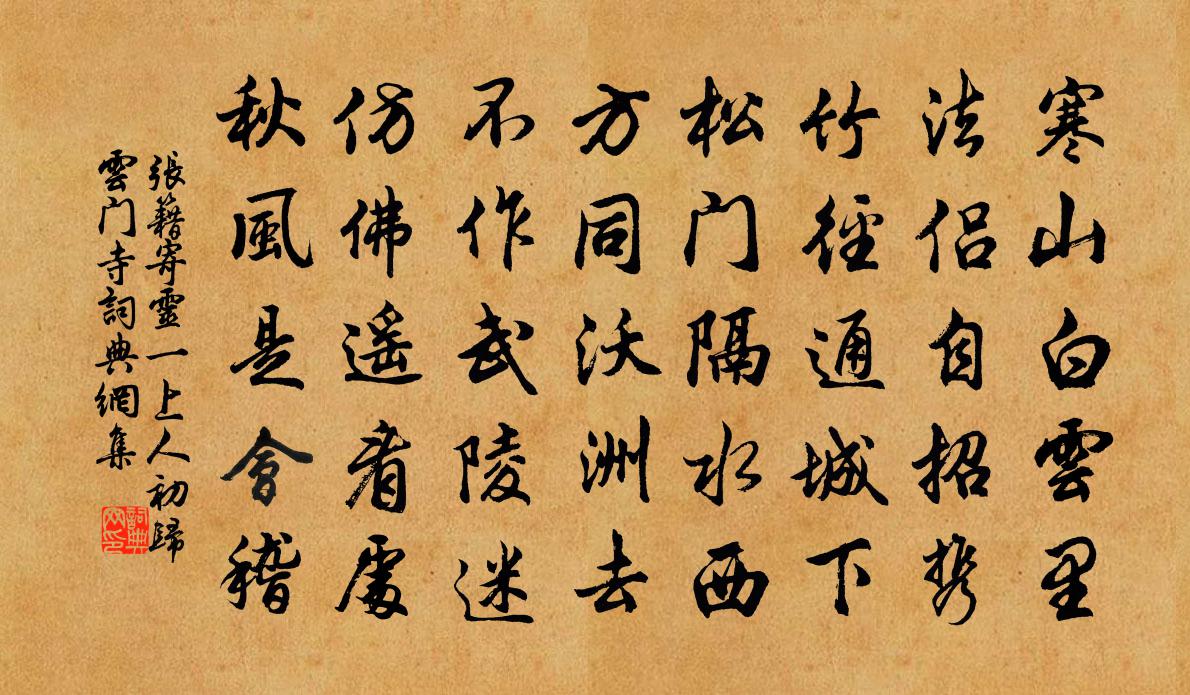 寒山白雲里
法侣自招携
竹徑通城下
松门隔水西
方同沃洲去
不作武陵迷
仿佛遥看處
秋風是會稽
張籍寄靈一上人初歸
雲门寺詞典網集
詞典
网印